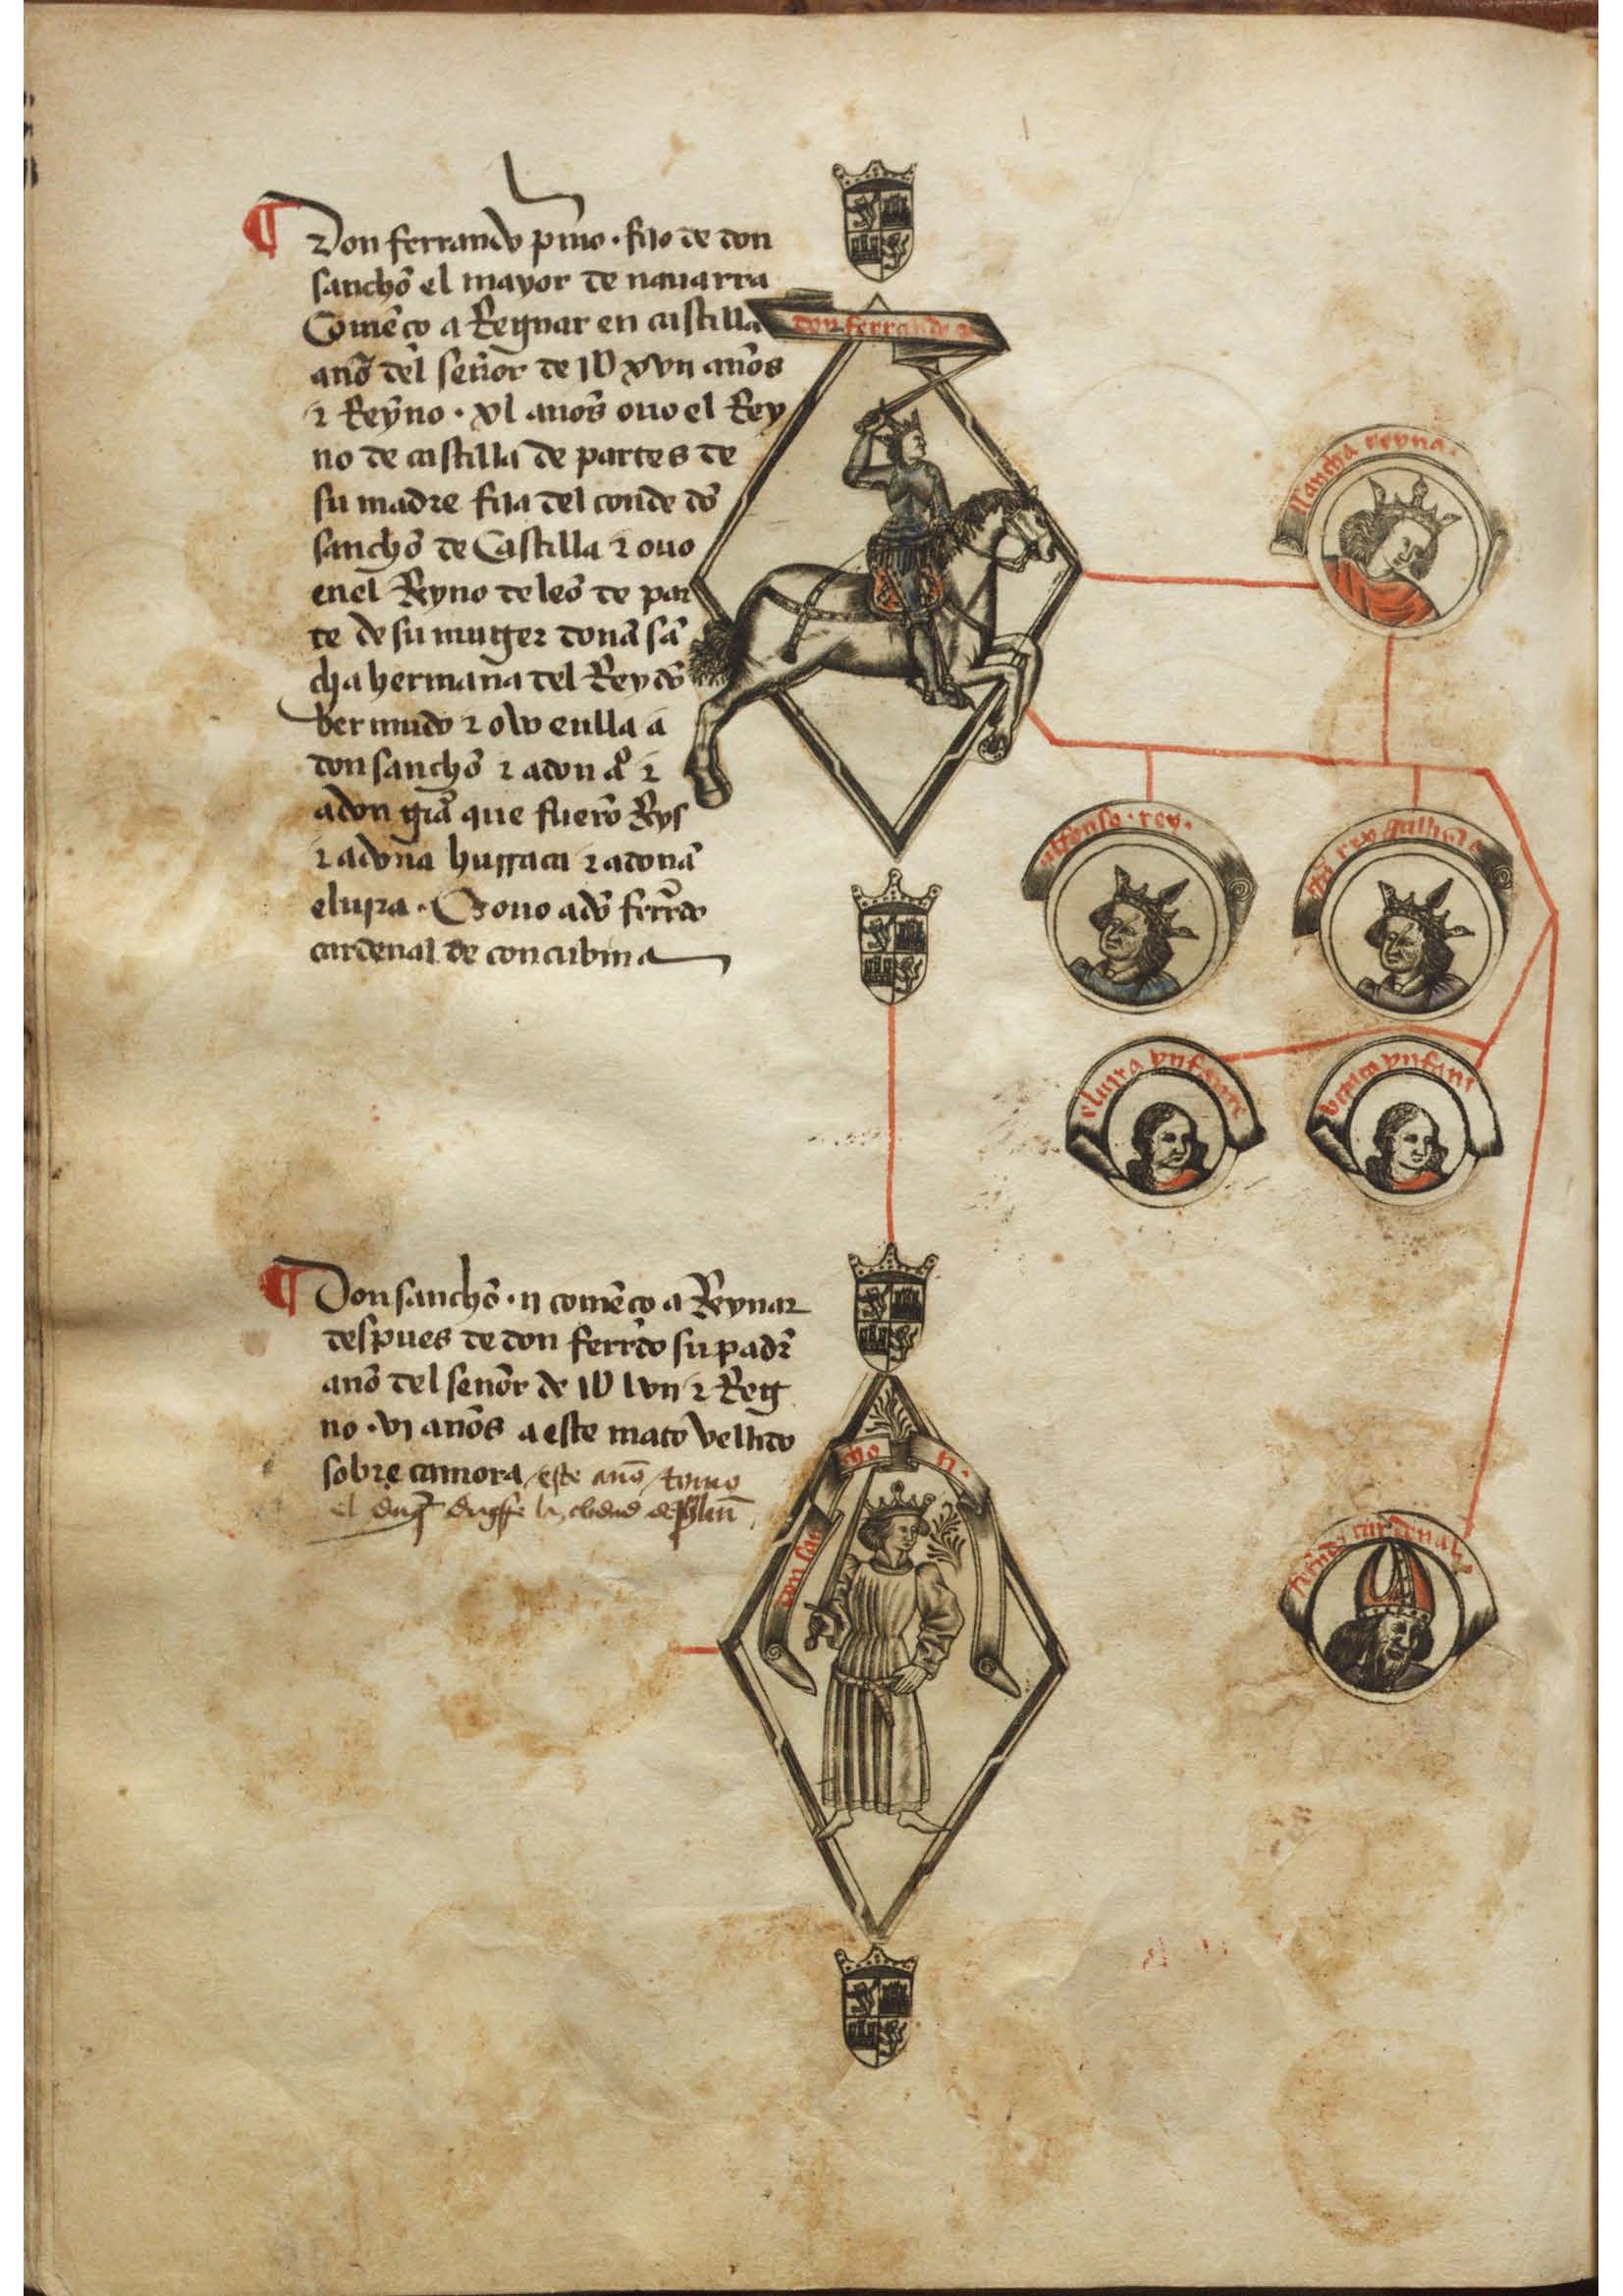 Don ferrando pmo · fijo de don
sancho el mayor de nauarra
Comẽço a Regnar en castilla
año del señor de M xvii años
⁊ Reyno · xl años ouo el Rey
no de castilla de partes de
su madre fija del conde dõ
sancho de Castilla ⁊ ouo
enel Reyno de leõ de par
te de su muger doña sã
cha hermana del Rey dõ
bermudo ⁊ ovo enlla a
don sancho ⁊ adon aº ⁊
adon gīa que fuerõ Rys
⁊ adoña hurraca ⁊ adoña
eluira · ouo adõ ferrdo
cardenal de concubina
don ferrando
sancha reyna ·
alfonso · rey ·
rey gallizia
eluira ynfante
vrraca ynfant
Don sancho · ii comẽço a Reynar
despues de don ferrdo su padr
año del señor de M lvii ⁊ Reg
no · vi años a este mato vellido
sobre camora este año tomo
el la cibdad de
don san cho ii ·
cardenal